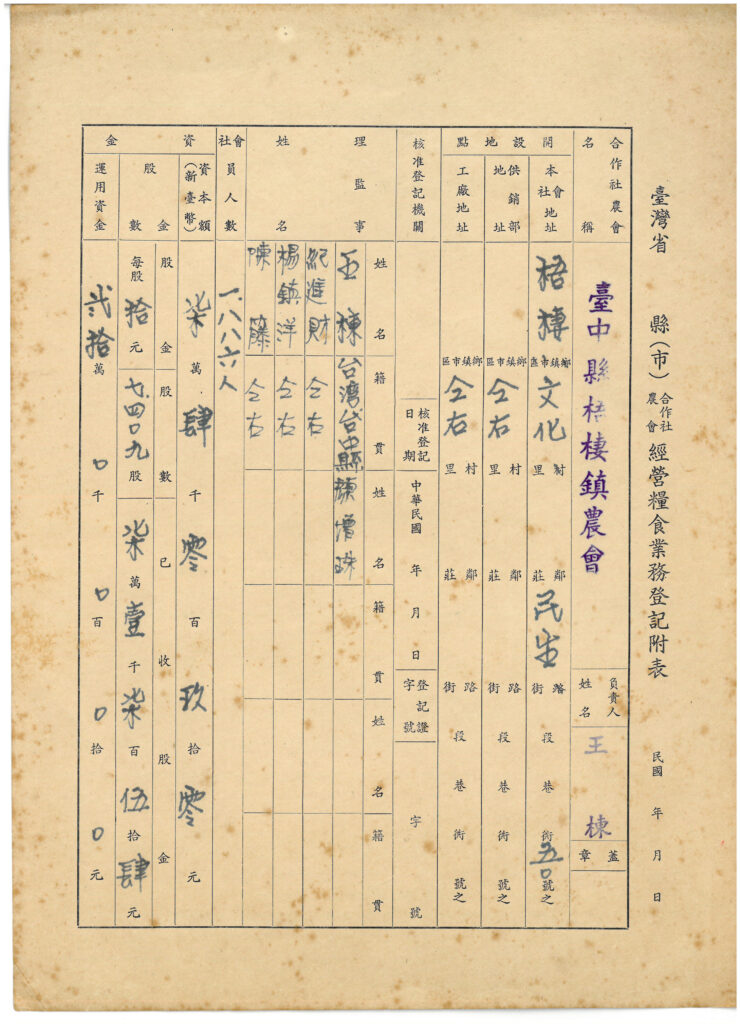 臺灣省 縣(市) 合作社農會 經營糧食業務登記附表 民國 年 月 日
合作社農會名稱 臺中縣梧棲鎮農會 負責人姓名 王棟 蓋章
開設地點 本社會地址 梧棲 鄉鎮市區 文化 村里 鄰莊 民生 路街 段 巷 衖 五〇 號之
供銷部地址 鄉鎮市區 仝右 村里 鄰莊 路街 段 巷 衖 號之
工廠地址 鄉鎮市區 仝右 村里 鄰莊 路街 段 巷 衖 號之
核准登記機關 核准登記日期 中華民國 年 月 日 登記證字號 字 號
理監事姓名 姓名 籍貫 姓名 籍貫 姓名 籍貫
王棟 台湾台中縣 陳增珠
紀進財 仝右
楊鎮洋 仝右
陳籐 仝右
社會員人數 一、八八六人
資金 資本額(新臺幣) 柒萬肆千零百玖拾零元
股金 股金 股數 已收股金
股數 每股拾元 七、四〇九股 柒萬壹千柒百伍拾肆元
運用資金 弍拾萬〇千〇百〇拾〇元